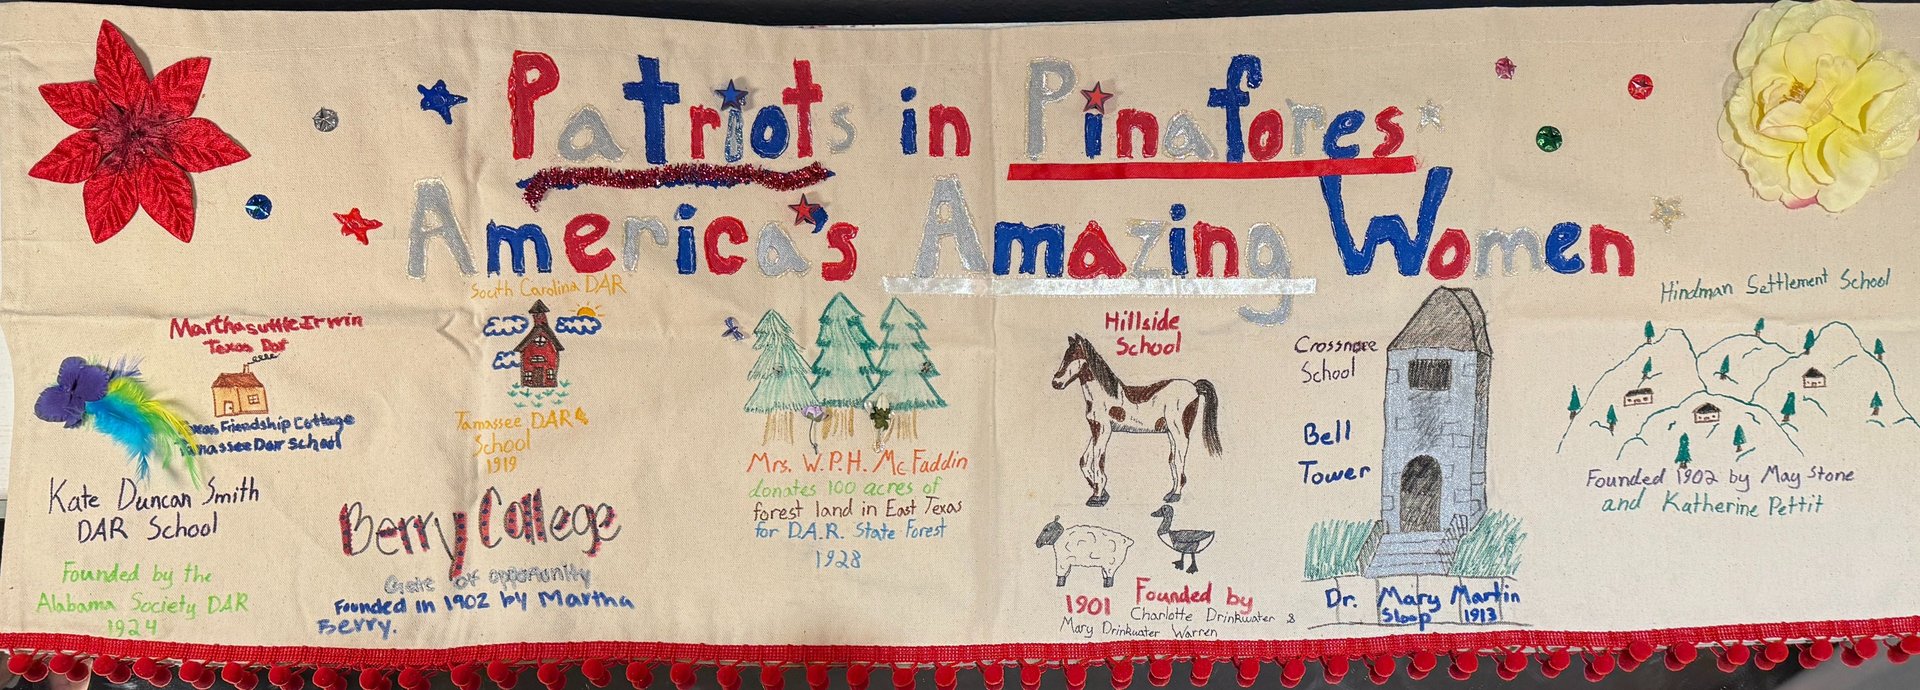 Patriots in Pinafores
America's Amazing Women
Martha
Irwin
Texas Dar
Friendship Cottage
Tamassee Dar School
Kate Duncan Smith
DAR School
Founded by the
Alabama Society DAR
1924
South Carolina DAR
Tamassee DAR
School
1919
Berry College
Gate of opportunity
Founded in 1902 by Martha
Berry.
Mrs. W.P.H. McFaddin
donates 100 acres of
forest land in East Texas
for D.A.R. State Forest
1928
Hillside
School
1901 Founded by
Charlotte Drinkwater &
Mary Drinkwater Warren
Crossnore
School
Bell
Tower
Dr. Mary Martin
Sloop 1913
Hindman Settlement School
Founded 1902 by May Stone
and Katherine Pettit